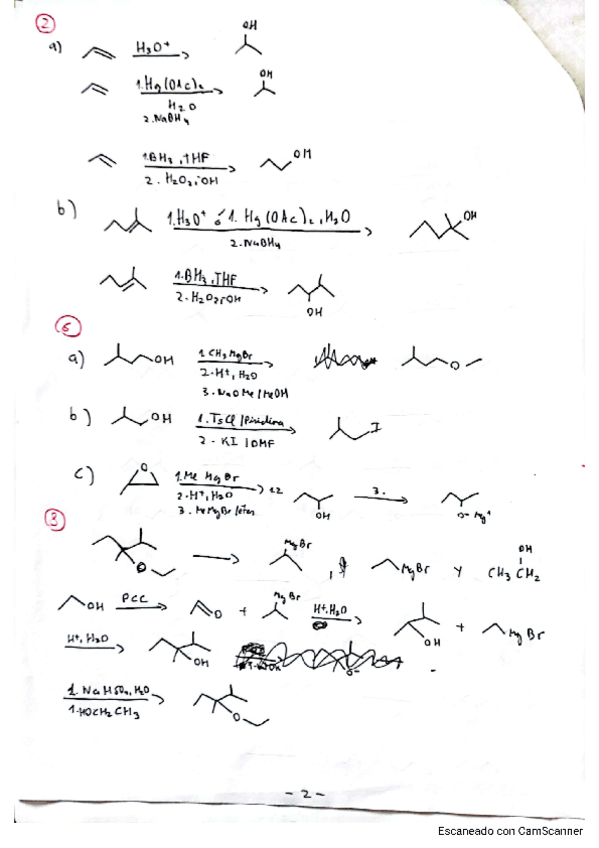 2
a) H3O+ OH
1. Hg(OAc)2 OH
H2O
2. NaBH4
1. BH3, THF OH
2. H2O2, -OH
b) 1. H3O+ ó 1. Hg(OAc)2, H2O OH
2. NaBH4
1. BH3, THF
2. H2O2, -OH OH
6
a) OH 1. CH3MgBr O
2. H+, H2O
3. NaOMe/MeOH
b) OH 1. TsCl/Piridina I
2. KI/DMF
c) O 1. MeMgBr 1,2 3.
2. H+, H2O OH O- Mg+
3. MeMgBr/éter
3
O MgBr , MgBr y CH3CH2 OH
OH PCC O + MgBr H+, H2O OH + MgBr
H+, H2O OH O-
1. NaHSO4, H2O O
1. HOCH2CH3
- 2 -
Escaneado con CamScanner